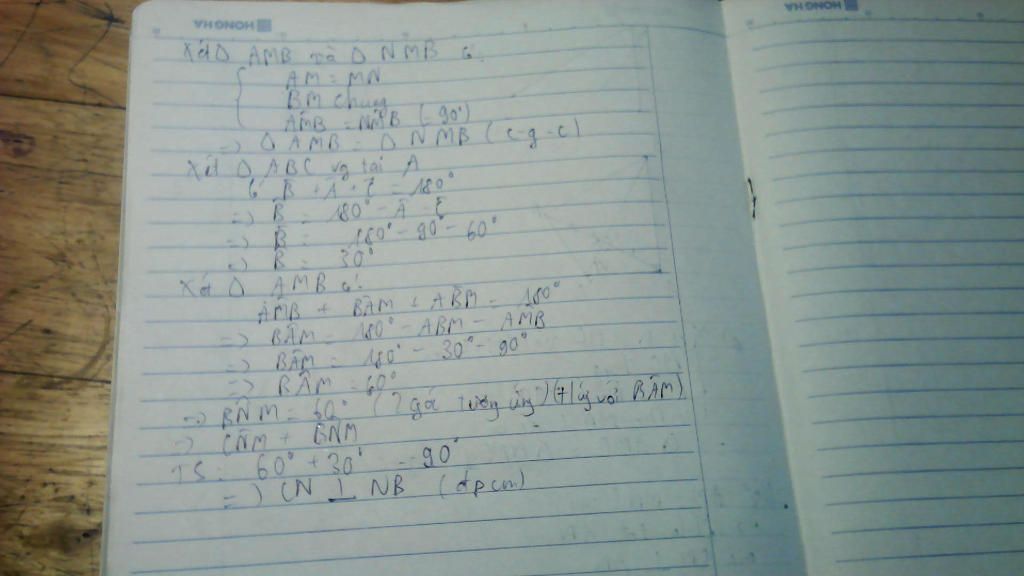 HONGHA
HONGHA
Xét Δ AMB và Δ NMB có:
AM = MN
BM chung
AMB = NMB (= 90°)
=> Δ AMB = Δ NMB (c-g-c)
Xét Δ ABC vg tại A
Có B̂ + Â + Ĉ = 180°
=> B̂ = 180° - Â - Ĉ
=> B̂ = 180° - 90° - 60°
=> B̂ = 30°
Xét Δ AMB có:
AM̂B + BÂM + AB̂M = 180°
=> BÂM = 180° - ABM - AM̂B
=> BÂM = 180° - 30° - 90°
=> BÂM = 60°
=> BN̂M = 60° (2 góc tương ứng) ( với BÂM)
=> CN̂M + BN̂M
TS: 60° + 30° = 90°
=> CN ⊥ NB (đpcm)